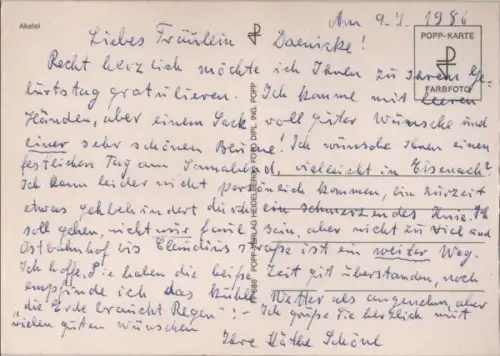 Akelei
Am 9.7. 1986
Liebes Fräulein Daenicke!
POPP-KARTE
FARBFOTO
Recht herzlich möchte ich Ihnen zu Ihrem Ge-
burtstag gratulieren. Ich komme mit leeren
Händen, aber einem Sack voll guter Wünsche und
einer sehr schönen Blume! Ich wünsche Ihnen einen
festlichen Tag am Sonnabend, vielleicht in Eisenach?
Ich kann leider nicht persönlich kommen, bin zurzeit
etwas gehbehindert durch ein schmerzendes Knie. Ich
soll gehen, nicht nur faul sein, aber nicht zu viel und
Ostbahnhof bis Claudiusstraße ist ein weiter Weg.
Ich hoffe, Sie haben die heiße Zeit gut überstanden, noch
empfinde ich das kühle Wetter als angenehm, aber
"die Erde braucht Regen"! – Ich grüße Sie herzlich mit
vielen guten Wünschen
Ihre Käthe Schöne
POPP-VERLAG HEIDELBERG FOTO DIPL. ING. POPP